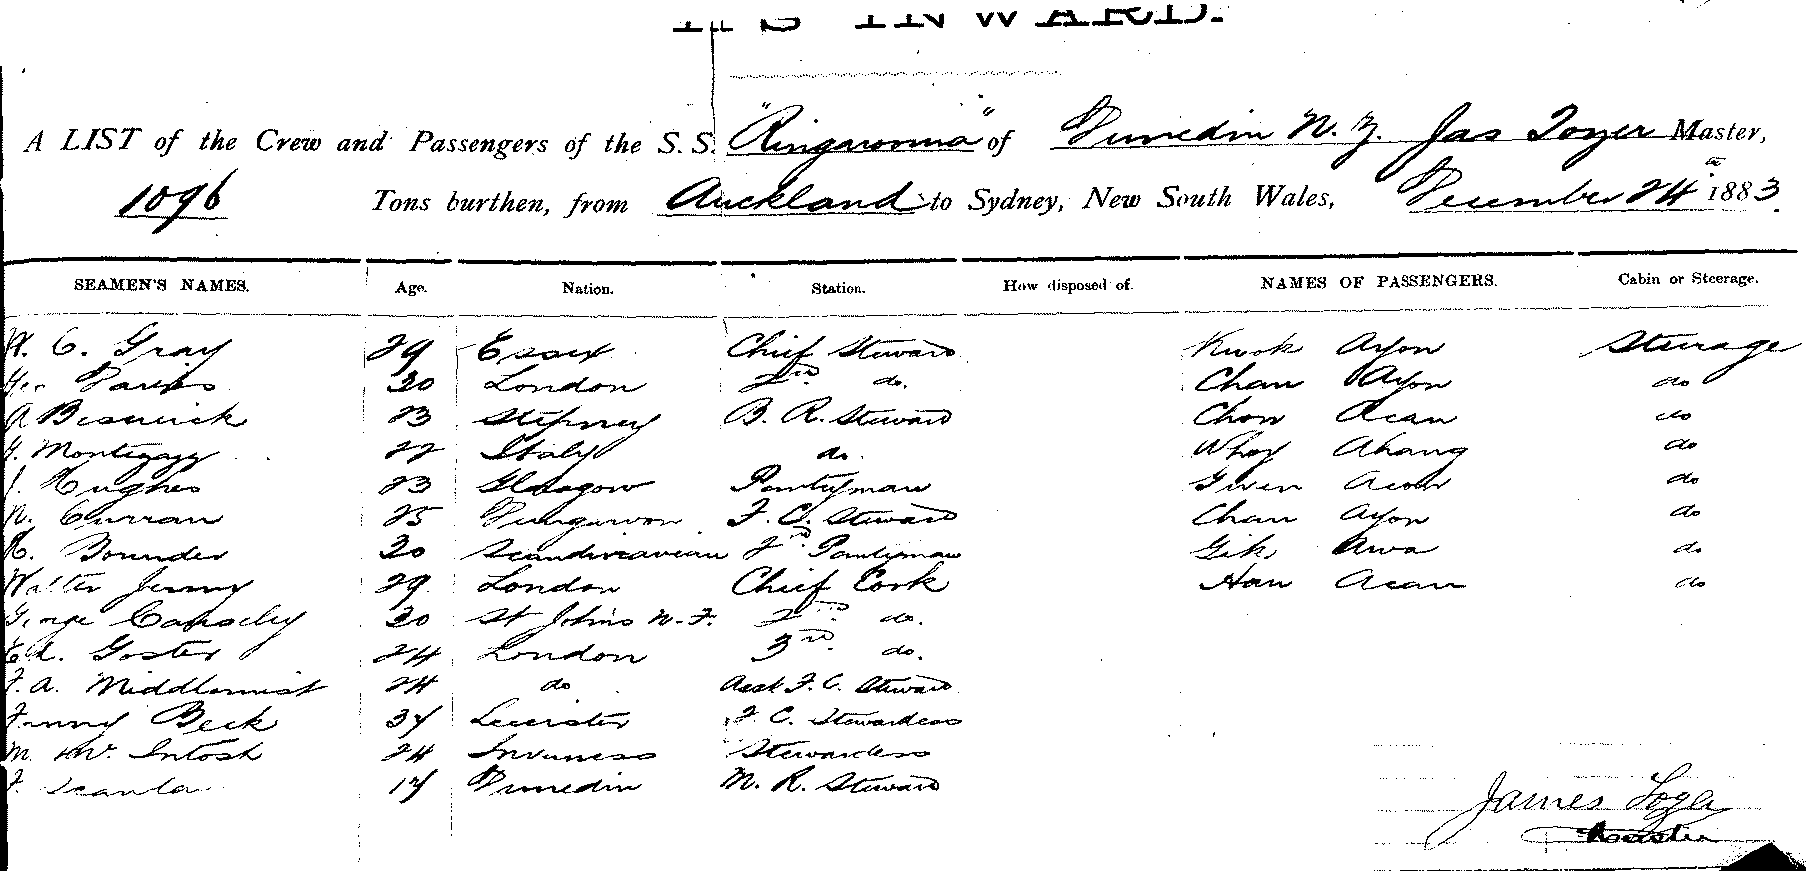 INWARD.
A LIST of the Crew and Passengers of the S.S. "Ringarooma" of Dunedin N.Z. Jas Tozer Master,
1096 Tons burthen, from Auckland to Sydney, New South Wales, December 24th 1883.
SEAMEN'S NAMES. Age. Nation. Station. How disposed of. NAMES OF PASSENGERS. Cabin or Steerage.
C. Gray 29 Essex Chief Steward Kwok Ayon Steerage
Geo 30 London 2nd do. Chan Ayon do
A Beswick 23 Stepney B. R. Steward Chon Acan do
Italy do. Whoy Ahang do
J. Hughes 23 Glasgow Pantryman Acon do
N. Curran 25 Dungarvon F. C. Steward Chan Ayon do
30 Scandinavian 2nd Pantryman Gik Awa do
Walter Jenny 29 London Chief Cook Han Acan do
George 30 St Johns N.F. 2nd do.
24 London 3rd do.
F. A. Middlemist 24 do Asst F. C. Steward
Fanny Beck 37 Leicister F. C. Stewardess
M. Mc Intosh 24 Inverness Stewardess
F. 17 Dunedin M. R. Steward
James Tozer
Master